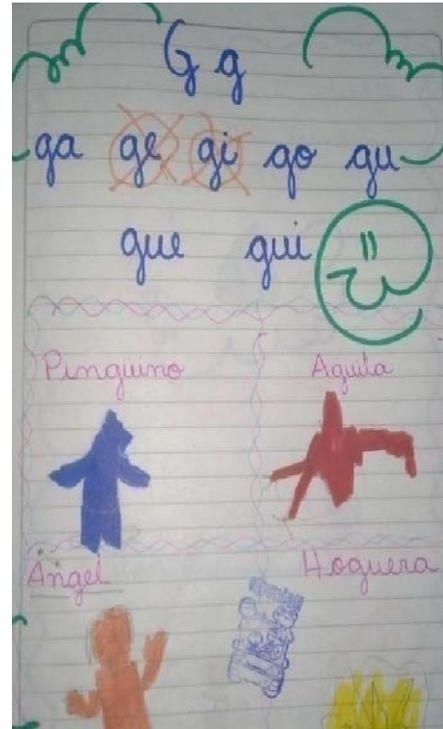 G g
ga ge gi go gu
gue gui
Pinguino Aguila
Angel Hoguera